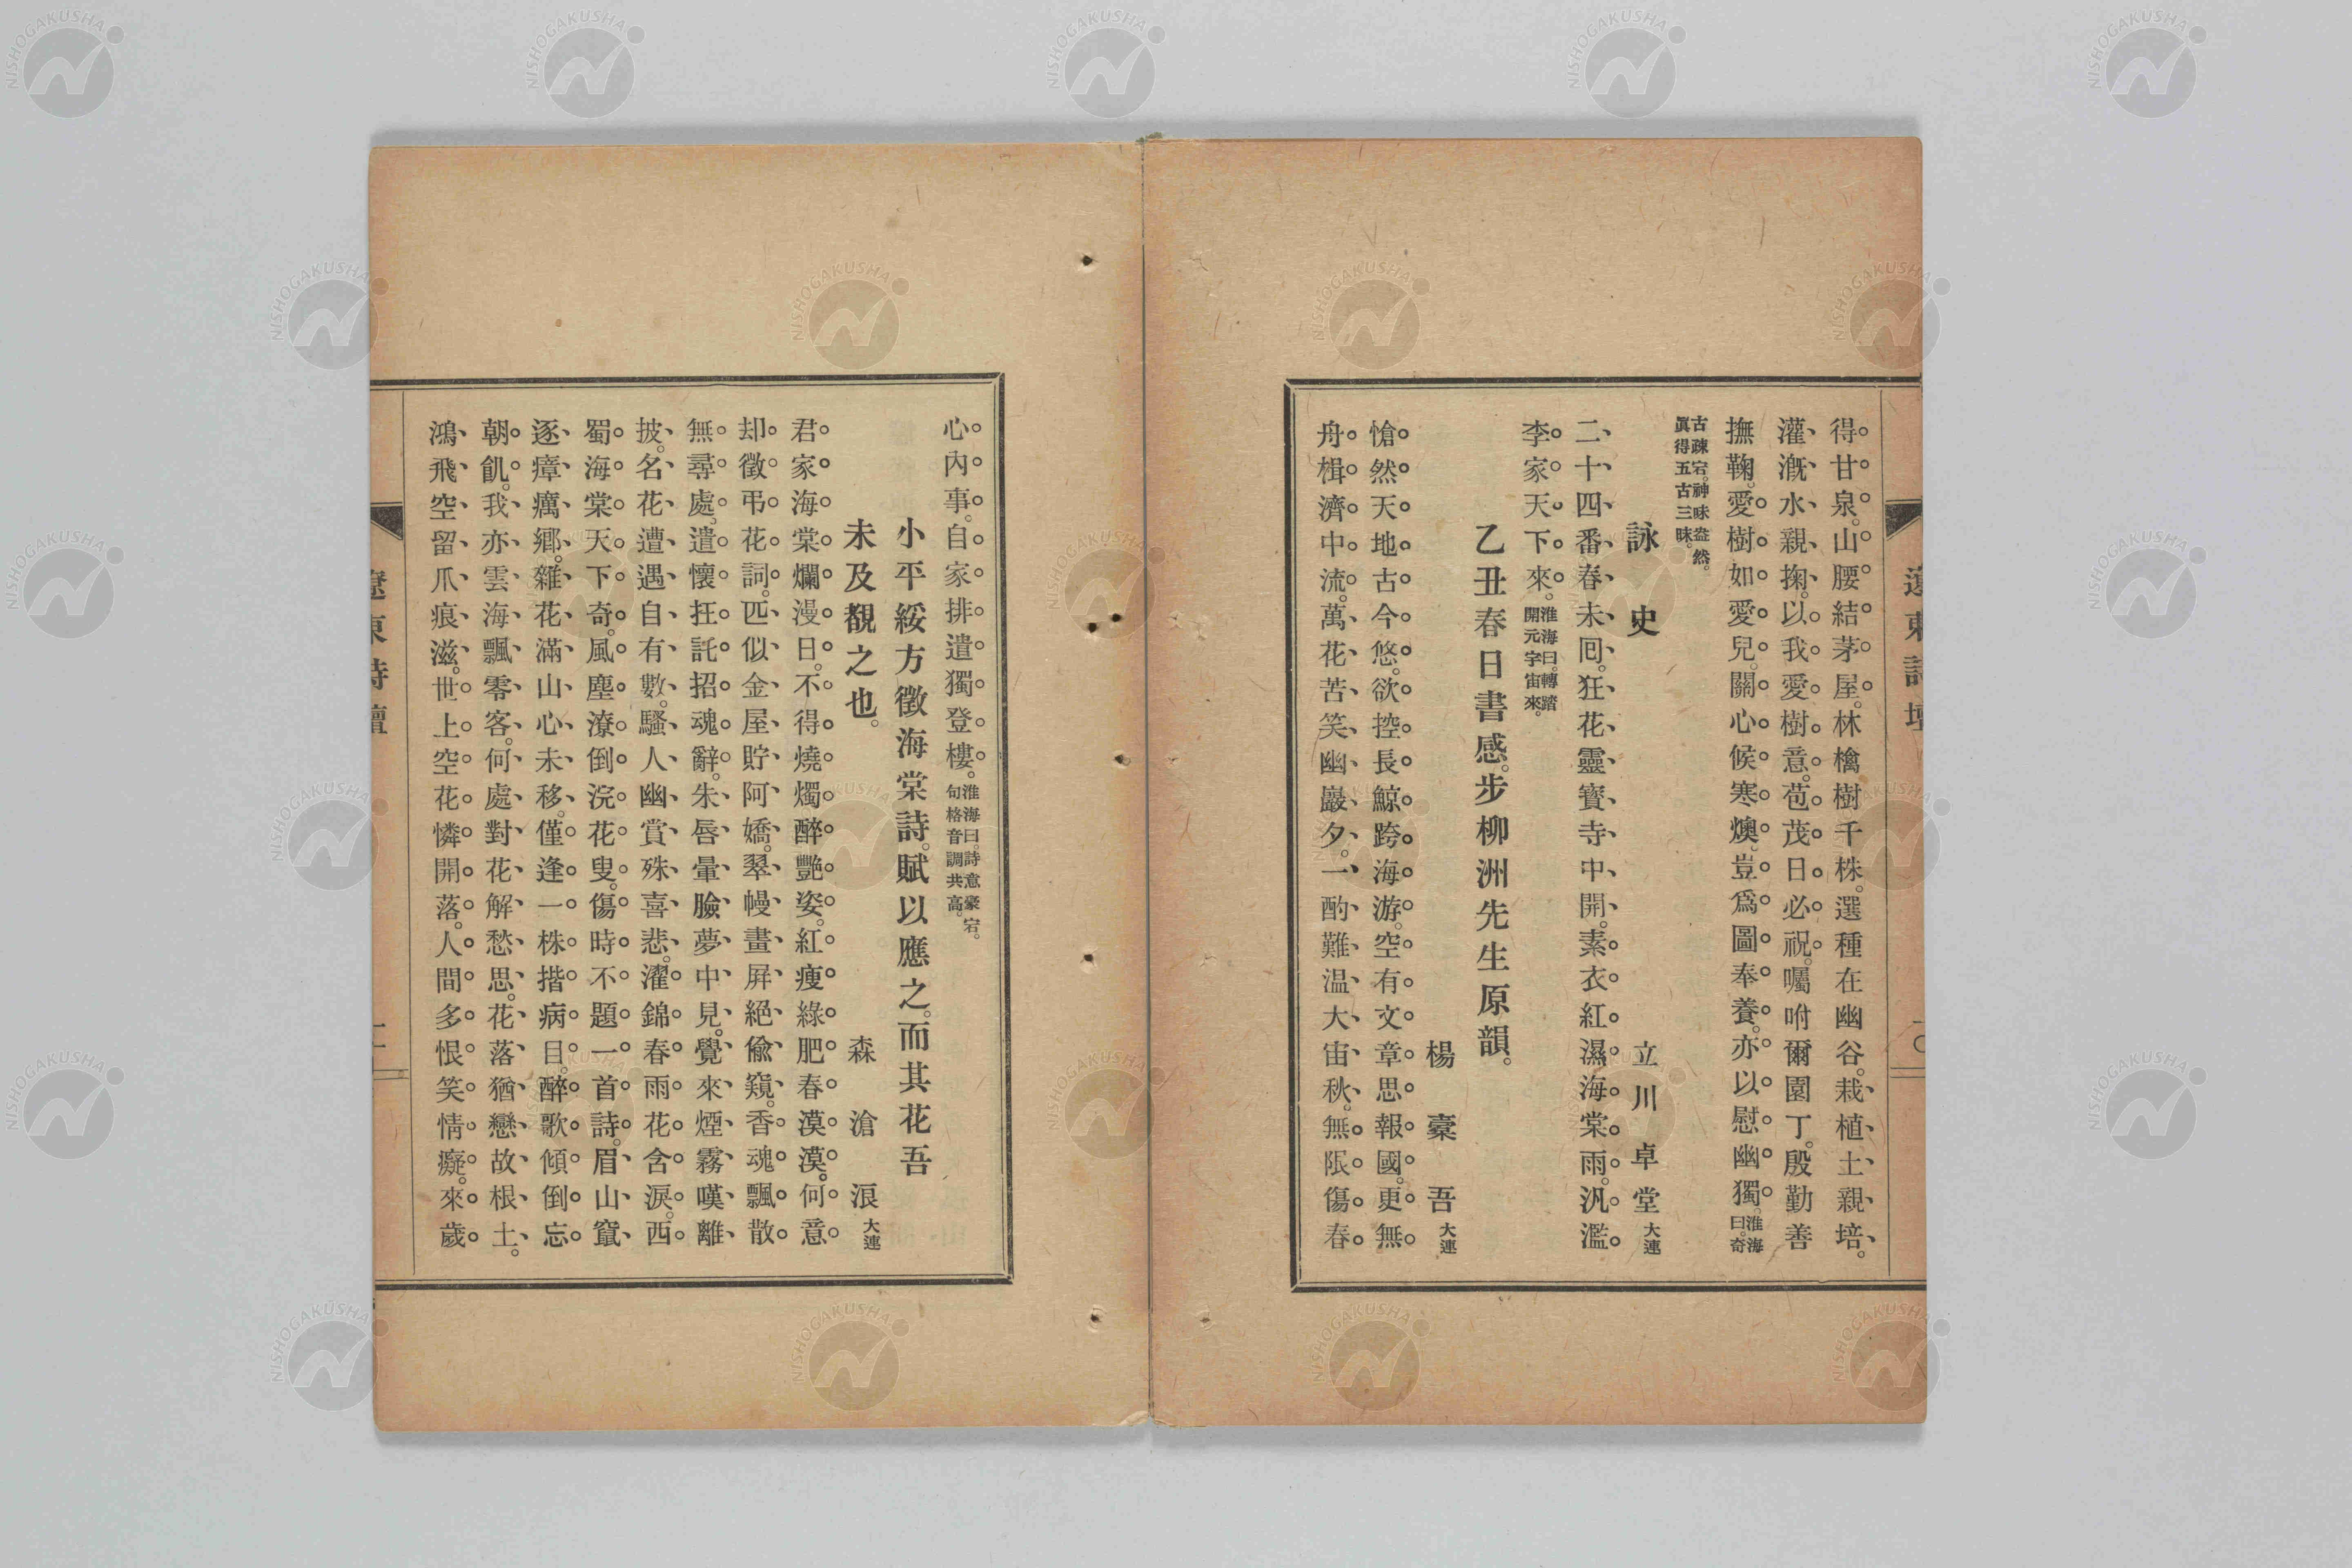 遼東詩壇
一〇
得甘泉。山腰結茅屋。林檎樹千株。選種在幽谷。栽植土親培。
灌漑水親掬。以我愛樹意。苞茂日必祝。囑咐爾園丁。殷勤善
撫鞠。愛樹如愛兒。關心候寒燠。豈爲圖奉養。亦以慰幽獨。淮海曰。奇
古疎宕。神味盎然。
眞得五古三昧。
詠史
立川卓堂 大連
二十四番春未囘。狂花靈寶寺中開。素衣紅濕海棠雨。汎濫
李家天下來。淮海曰。轉踏開元宇宙來。
乙丑春日書感。步柳洲先生原韻。
楊橐吾 大連
愴然天地古今悠。欲控長鯨跨海游。空有文章思報國。更無
舟楫濟中流。萬花苦笑幽巖夕。一酌難溫大宙秋。無限傷春
心內事。自家排遣獨登樓。淮海曰。詩意豪宕。句格音調共高。
小平綏方徵海棠詩。賦以應之。而其花吾
未及覩之也。
森滄浪 大連
君家海棠爛漫日。不得燒燭醉艷姿。紅瘦綠肥春漠漠。何意
却徵弔花詞。匹似金屋貯阿嬌。翠幔畫屛絕偸窺。香魂飄散
無尋處。遣懷抂託招魂辭。朱唇暈臉夢中見。覺來煙霧嘆離
披。名花遭遇自有數。騷人幽賞殊喜悲。濯錦春雨花含淚。西
蜀海棠天下奇。風塵潦倒浣花叟。傷時不題一首詩。眉山竄
逐瘴癘鄉。雜花滿山心未移。僅逢一株揩病目。醉歌傾倒忘
朝飢。我亦雲海飄零客。何處對花解愁思。花落猶戀故根土。
鴻飛空留爪痕滋。世上空花憐開落。人間多恨笑情癡。來歲
遼東詩壇
NISHOGAKUSHA